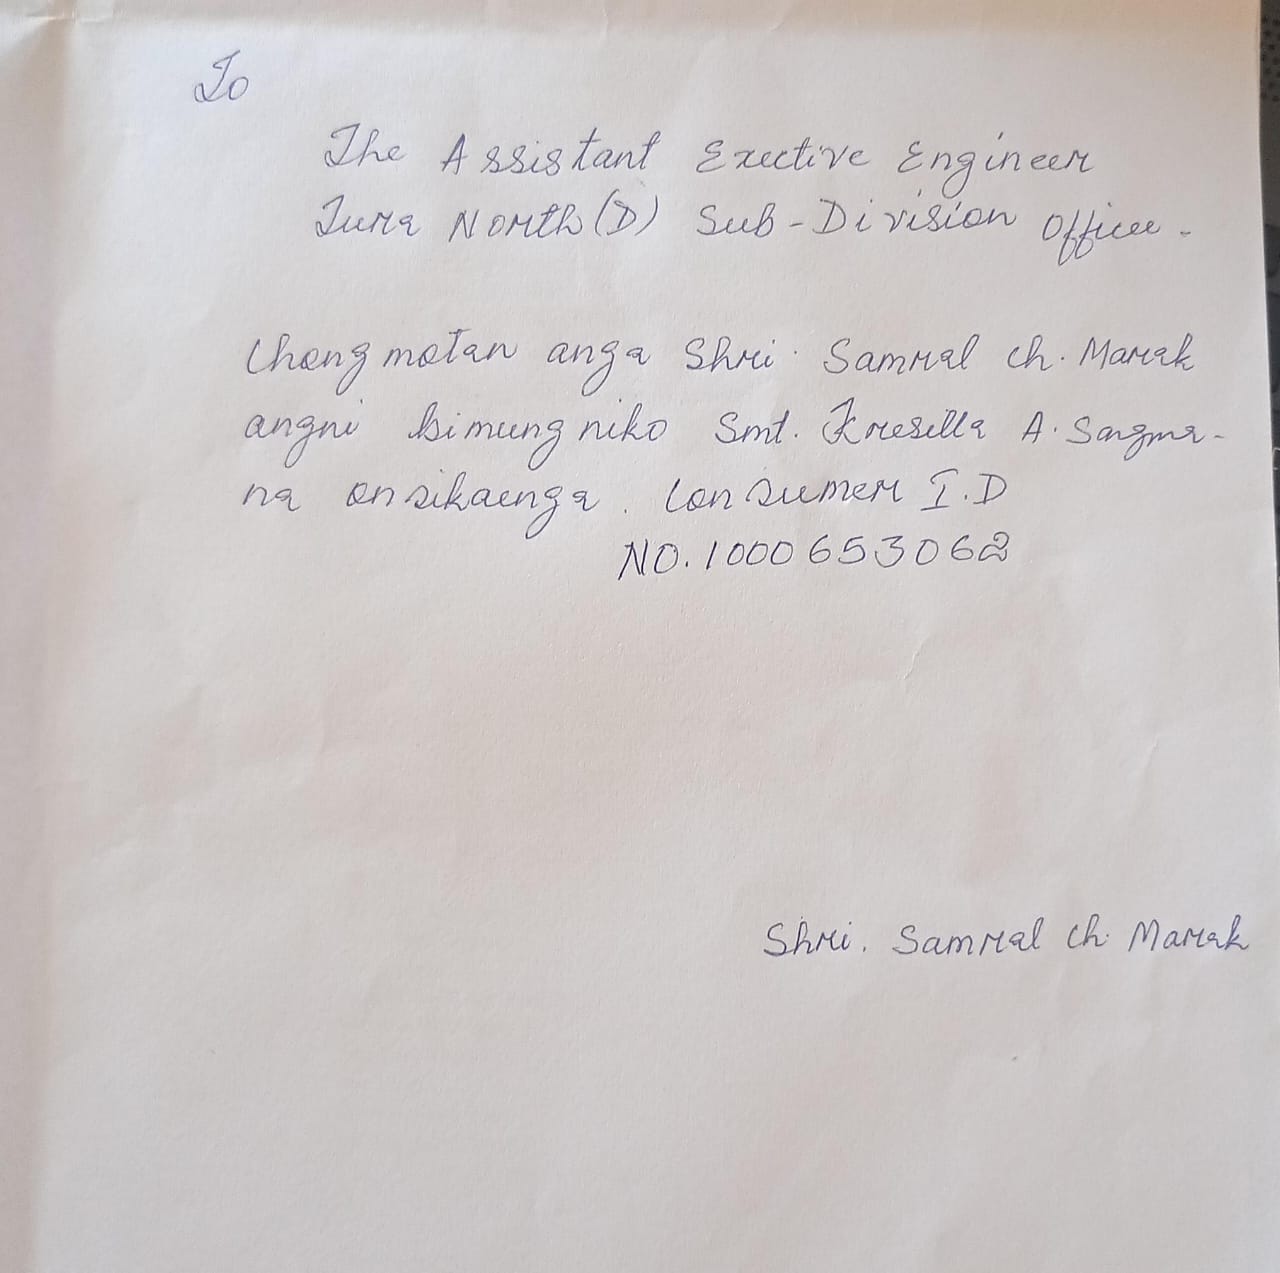 To
The Assistant Exective Engineer
Tura North (D) Sub-Division Office.
Chengmotan anga Shri. Samral Ch. Marak
angni bimung niko Smt. Kresilla A. Sangma-
na on sikaenga. Consumer I.D
NO. 1000653062
Shri. Samral Ch. Marak